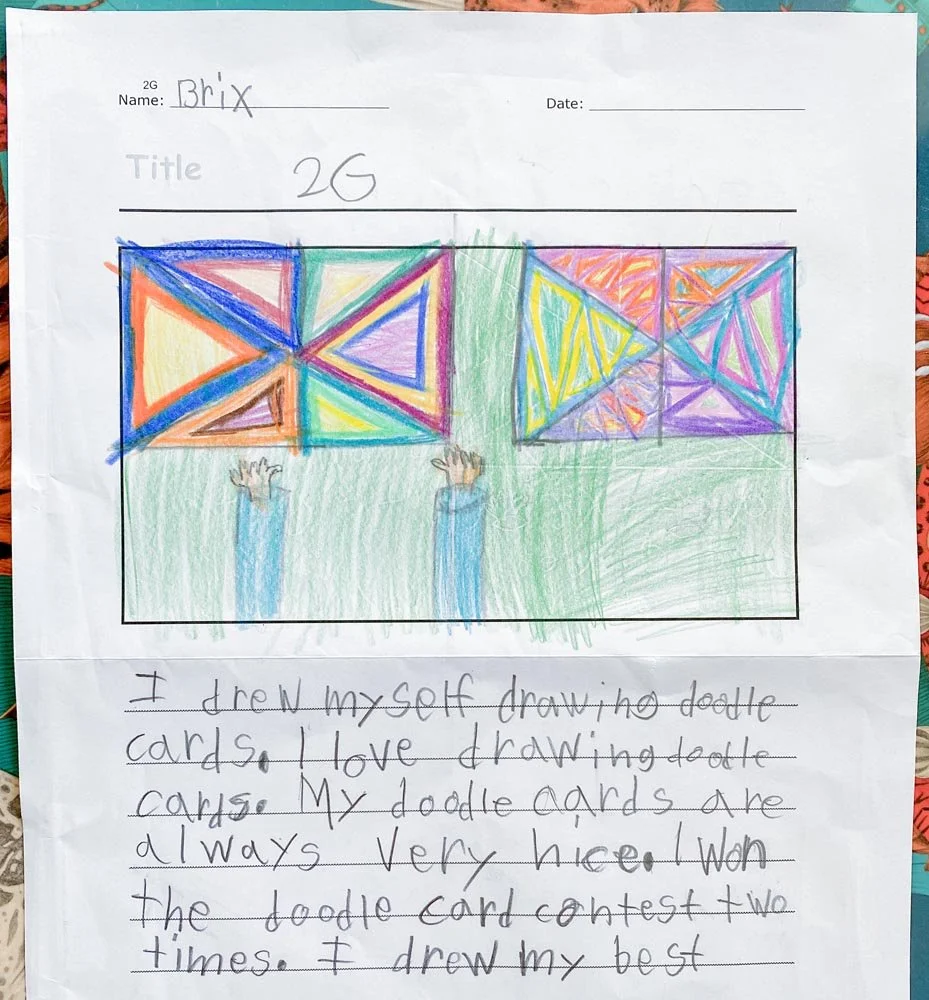 2G
Name: Brix
Date:
Title 2G
I drew myself drawing doodle
cards. I love drawing doodle
cards. My doodle cards are
always very nice. I won
the doodle card contest two
times. I drew my best